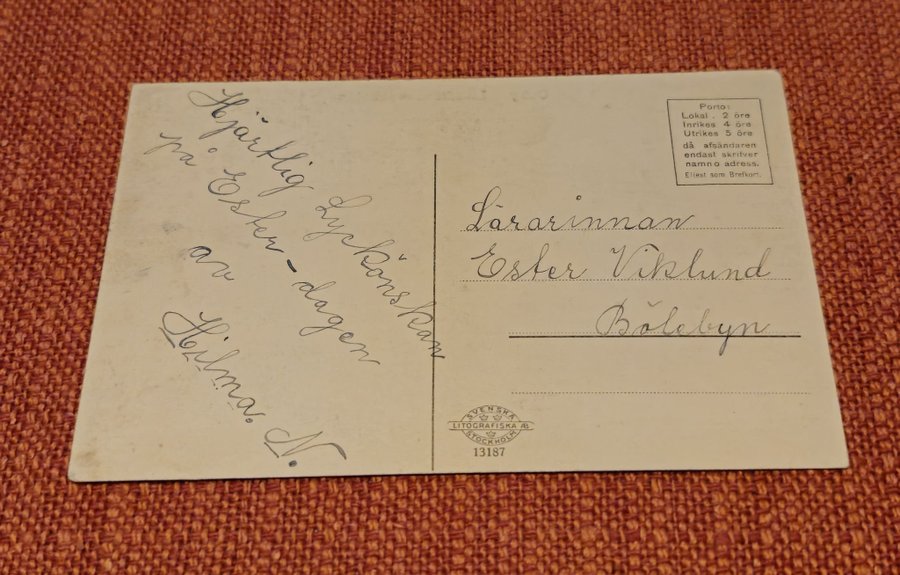 Hjärtlig Lyckönskan
på Ester-dagen
av
Hilma. N.
Porto:
Lokal . 2 öre
Inrikes 4 öre
Utrikes 5 öre
då afsändaren
endast skrifver
namn o adress.
Eljest som Brefkort.
Lärarinnan
Ester Viklund
Bölebyn
SVENSKA
LITOGRAFISKA AB
STOCKHOLM
13187